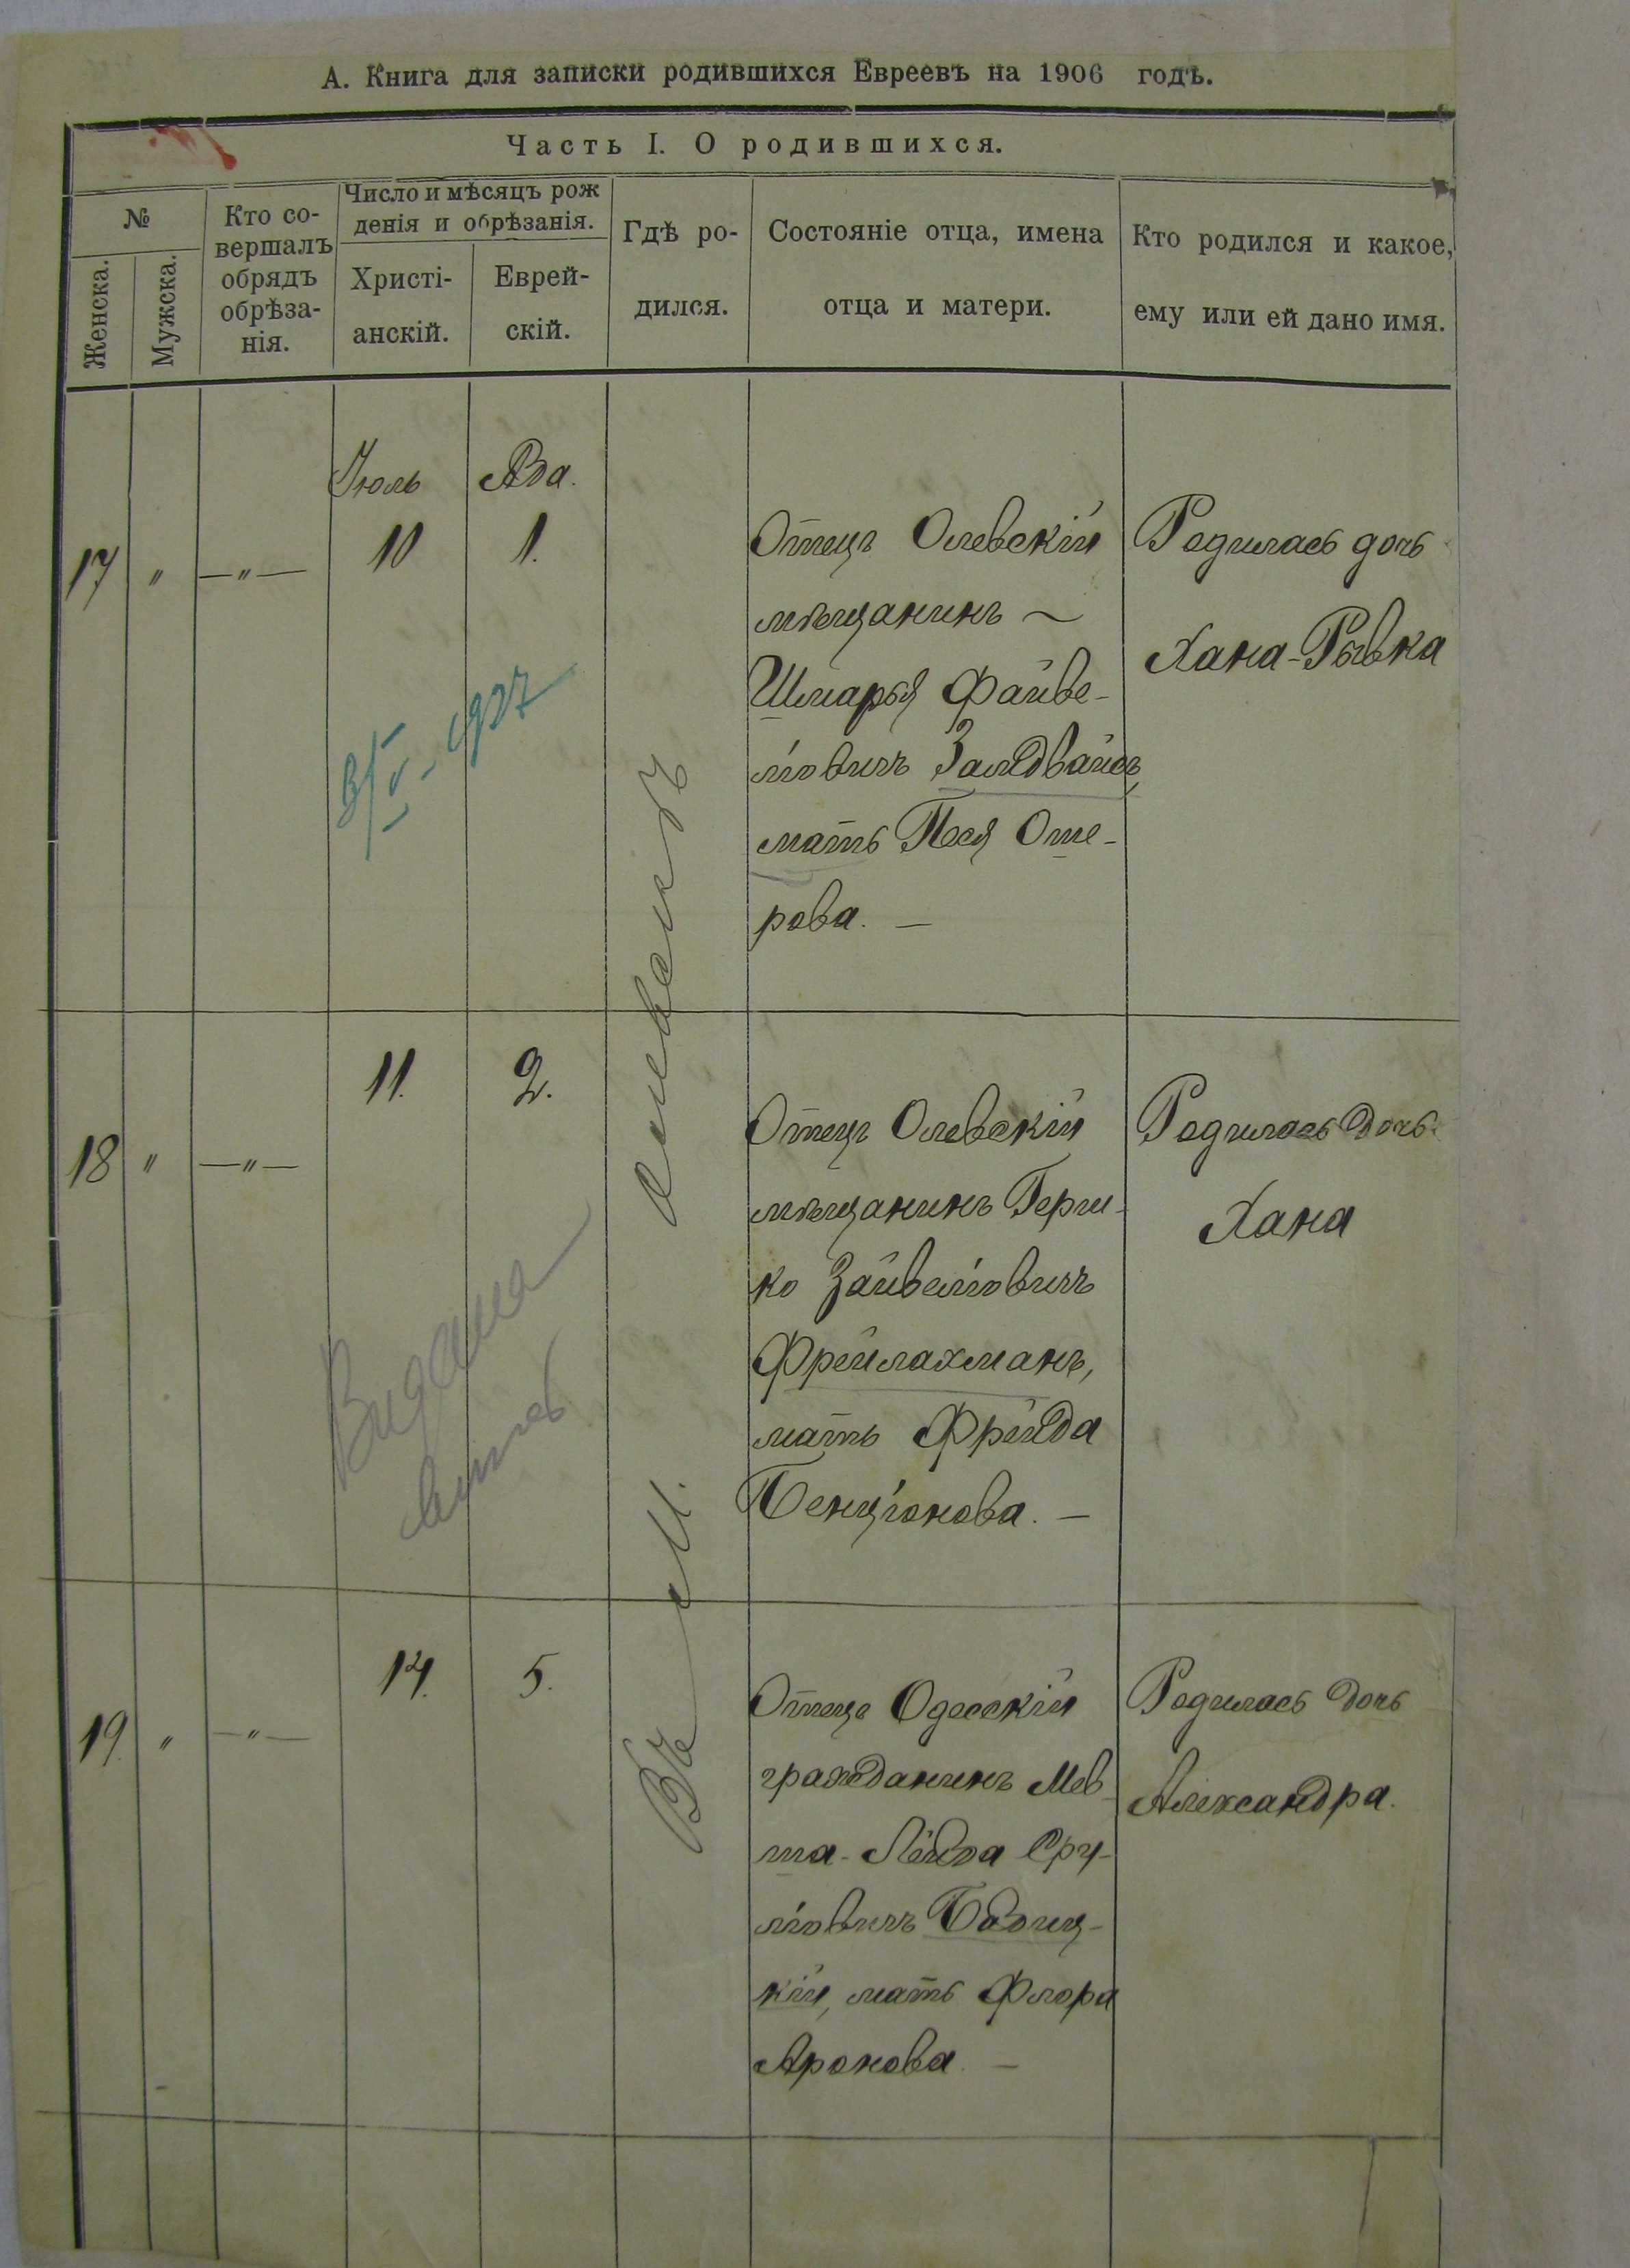 А. Книга для записки родившихся Евреевъ на 1906 годъ.
Часть I. О родившихся.
№
Женска.
Мужска.
Кто со-
вершалъ
обрядъ
обрѣза-
нія.
Число и мѣсяцъ рож
денія и обрѣзанія.
Христі-
анскій.
Еврей-
скій.
Гдѣ ро-
дился.
Состояніе отца, имена
отца и матери.
Кто родился и какое,
ему или ей дано имя.
Іюль
Ава.
17
"
—"—
10
1.
Отецъ Олевскій
мѣщанинъ ~
Шмарья Файве-
ліовичъ Залдвайсъ,
мать Песя Оше-
рова. —
Родилась дочь
Хана-Рывка
1927
Въ м. Олевскѣ
18
"
—"—
11.
2.
Отецъ Олевскій
мѣщанинъ Герш-
ко Зайвеліовичъ
Фрейлахманъ,
мать Фрейда
Бенціонова. —
Родилась дочь
Хана
Видана
19.
"
—"—
14.
5.
Отецъ Одесскій
гражданинъ Мев-
ша-Лейба Сру-
ліовичъ
кій, мать Флора
Аронова —
Родилась дочь
Александра.